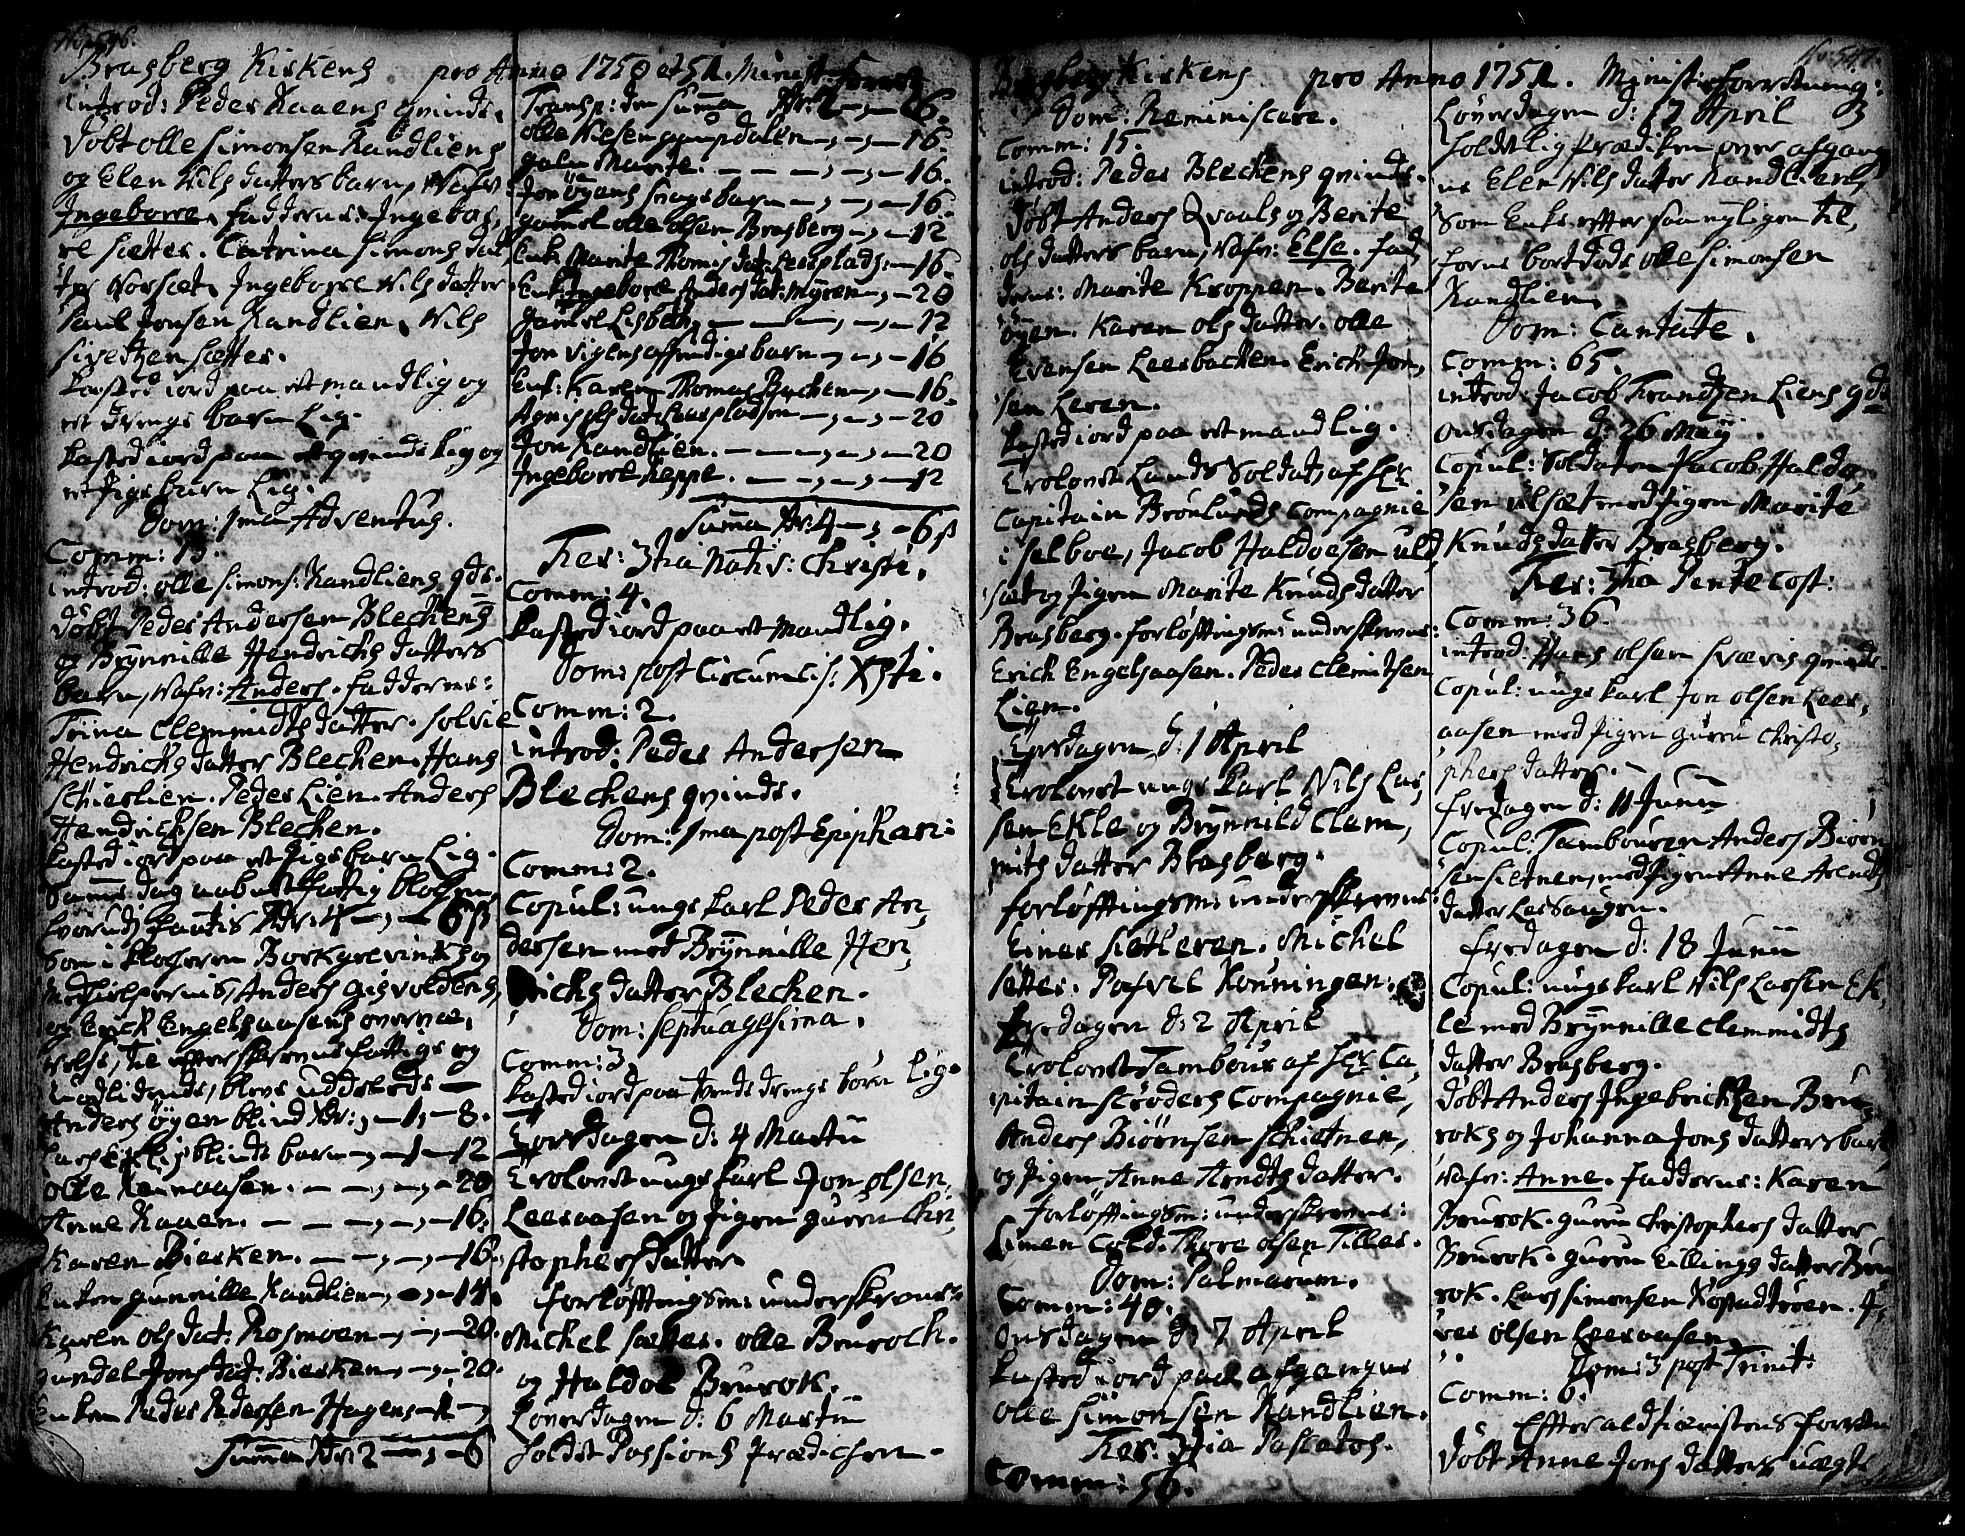 No: 546.
Brasberg Kirkens pro Anno 1750 et 51. Minist: forret
introd: Peder Kaaens qvinde.
Døbt olle Simonsen Randliens
og Elen Nils datters barn, Nafn:
Ingeborre, fadderne: Ingebor,
re sætter. Catrina Simons dat,
ter Norset, Ingeborre Nils datter
Paul Jonsen Randlien, Nils
Sivertzen sætter.
kasted iord paa et mandlig og
et drenge barn Lig.
kasted iord paa et qvinde lig og
et Pige barn Lig.
Dom: 1ma Adventus.
Comm: 15.
introd: olle Simons: Randliens qde.
døbt Peder Andersen Bleckens
og Brynnille Hendrichs datters
barn, Nafn: Anders. fadderne:
Trina Clemmidts datter. Solvie
Hendrichs datter Blecken. Hans
Schierlien. Peder Lien. Anders
Hendrichsen Blecken.
kasted iord paa et Pige barn Lig.
Samme dag aabnet fattig blocken,
hvorudj fantis Rdr: 4 — " — 6 ß
som i klocheren Borkgrevinks og
Medhielperne, Anders Gisvoldens,
og Erick Engelsaasens overvæ,
relse, til efterskrevne fattige og
Nødlidende, blev uddeelede —
Anders øyen blind Rdr: " — 1 " — 8.
Lars Eklis blinde barn — " — 1 — 12
olle Reinaasen. — — " — " — 20
Anne Kaaen. — — " — " — 16.
Karen Biercken. — — " — " — 16.
Enken Gunnille Randlien — " — " — 14.
Karen ols dat: Rosmoen — " — " — 20.
Gundel Jons dat: Biercken — " — " — 20.
Enken Peder Pedersen Hagens — 1 — "
Summa Rdr 2 — " — 6
Transp: den Summa Rdr: 2 — " — 6.
olle Nilsen — " — " — 16.
galne Marite. — — " — " — 16.
Jon øyens — barn — " — " — 16
gamel olle olsen Brasberg — " — 12
Enk: Marite Thomis dat: — — 16.
Enk: Ingeborre Anders dat: Myren — " — 20
gamel Lisbeth, — — " — " — 12
Jon Vigens — barn — " — " — 16
Enk: Karen Thomas Buchen — " — 16.
Agnis ols dat: — " — " — 20
Jon Randlien. — — " — " — 20
Ingeborre Reppe. — — " — " — 12
Summa Rdr: 4 — " — 6 ß
Fer: 3tia Nativ: Christi.
Comm: 4.
kasted iord paa et mandlig.
Dom: post Circumcis: Xsti.
Comm: 2.
introd: Peder Andersen
Bleckens qvinde.
Dom: 1ma post Epiphani:
Comm: 2.
Copul: unge karl Peder An,
dersen med Brynnille Hen,
drichs datter Blecken.
Dom: Septuagesima.
Comm: 3.
kasted iord paa tvende drenge børn Lig.
Torsdagen d: 4 Martii
Trolovet unge karl Jon olsen
Leeraasen og Pigen Guren Chri,
stophers datter
forløftningsm: underskreven:
Michel sætter. olle Brurock.
og Haldor Brurok.
Løverdagen d: 6 Martii
holdet Passions Prædichen.
No: 547.
Brasberg Kirkens pro Anno 1751. Ministr: forretning:
Dom: Reminiscere.
Comm: 15.
introd: Peder Bleckens qvinde.
Døbt Anders Qvaals og Berite
ols datters barn, Nafn: Else. fad,
derne: Marite Kroppen. Berite
øyen. Karen ols datter. olle
Evensen Leerbacken. Erick Jon,
sen Leren.
kasted iord paa et mandlig.
Trolovet Land Soldat af Hr:
Capitain Brønlunds Compagnie
i Selboe, Jacob Haldoersen Uld,
sæt og Pigen Marite Knuds datter
Brasberg. forløftingsm: underskreven:
Erick Engelsaasen. Peder Clemitsen
Lien.
Torsdagen d: 1 April
Trolovet unge karl Nils Lar,
sen Ekle og Brynnild Clem,
mits datter Brasberg.
forløfftingsm: underskreven:
Einer Sletleren. Michel
sætter. Pofvel Rønningen.
fredagen d: 2 April
Trolovet Tambour af Hr: Ca,
pitain Scrøders Compagnie,
Anders Biørnsen Schietnen,
og Pigen Anne Arndts datter.
forløftingsm: underskreven:
Simen Cold. Thore olsen Tiller.
Dom: Palmarum.
Comm: 40.
onsdagen d: 7 April
kasted iord paa afgangne
olle Simonsen Randlien.
Fer: 3tia Pascatos.
Comm: 56.
Løverdagen d: 17 April
holdt Lig Prædiken over afgang,
ne Elen Nils datter Randlien,
som Enke efter saa nyligen til,
forne bortdøde olle Simonsen
Randlien.
Dom: Cantate.
Comm: 65.
introd: Jacob Frandtzen Liens qde
onsdagen d: 26 Maij
Copul: Soldaten Jacob Haldo,
sen Ulset med Pigen Marite
Knuds datter Brasberg.
Fer: 3tia Pentecost:
Comm: 36.
introd: Hans olsen — qvinde
Copul: unge karl Jon olsen Leer,
aasen med Pigen Guren Christo,
phers datter. —
fredagen d: 11 Junii
Copul: Tambouren Anders Biørn
sen Sietnen, med Pigen Anne Arendts
datter —.
fredagen d: 18 Junii
Copul: unge karl Nils Larsen Ek,
le med Brynnille Clemmidts
datter Brasberg.
Døbt Anders Ingebrichtsen Bru,
roks og Johanna Jons datters barn,
Nafn: Anne. fadderne: Karen
Brurok. Guren Christophers datter
Brurok. Guren Ellings datter Bru
rok. Lars Simonsen Røstadtrøen. I,
ver olsen Leeraasen.
Dom: 3 post Trinit:
Comm: 6.
Effter — forreen
døbt Anne Jons datters uægte